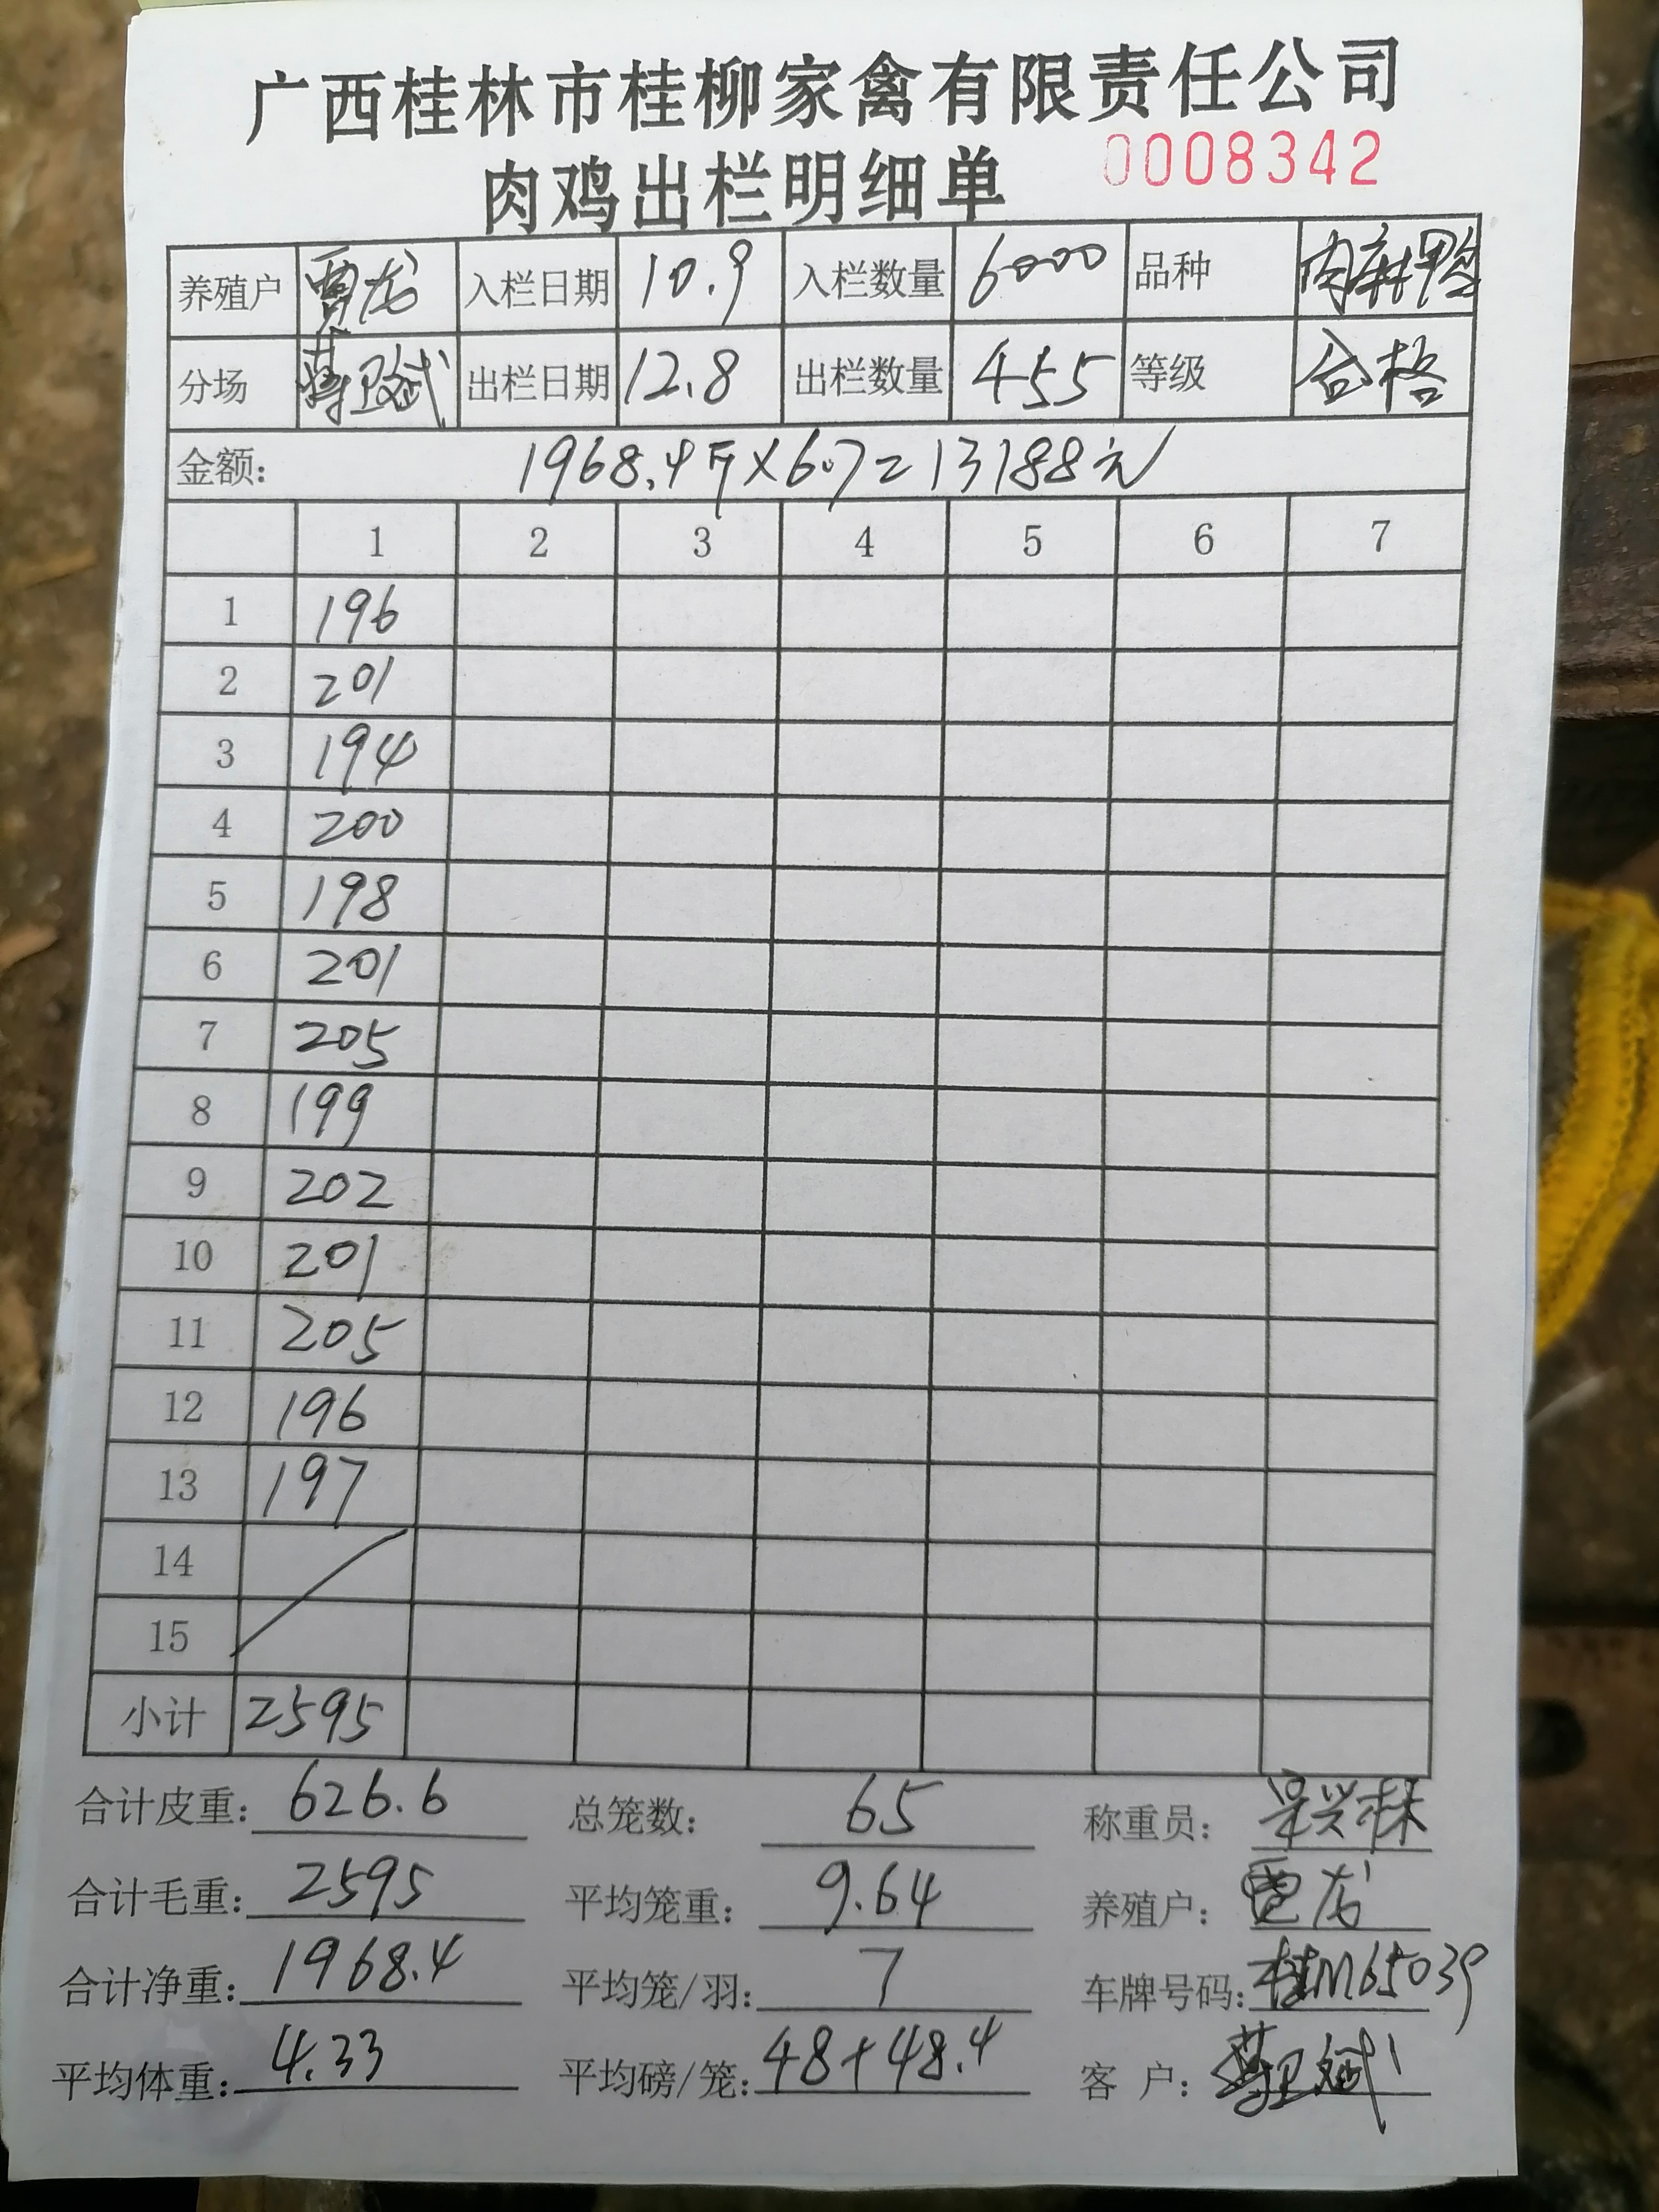 广西桂林市桂柳家禽有限责任公司
肉鸡出栏明细单 0008342
养殖户 贾龙 入栏日期 10.9 入栏数量 6000 品种 肉麻鸭
分场 蒋卫斌 出栏日期 12.8 出栏数量 455 等级 合格
金额: 1968.4斤×6.7=13188元
1 2 3 4 5 6 7
1 196
2 201
3 194
4 200
5 198
6 201
7 205
8 199
9 202
10 201
11 205
12 196
13 197
14
15
小计 2595
合计皮重: 626.6 总笼数: 65 称重员: 吴兴林
合计毛重: 2595 平均笼重: 9.64 养殖户: 贾龙
合计净重: 1968.4 平均笼/羽: 7 车牌号码: 桂M65039
平均体重: 4.33 平均磅/笼: 48+48.4 客 户: 蒋卫斌